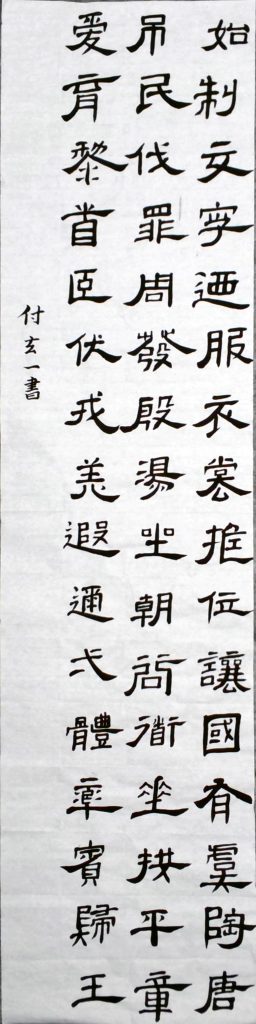 始制文字迺服衣裳推位讓國有虞陶唐
吊民伐罪周發殷湯坐朝問衜垂拱平章
爱育黎首臣伏戎羌遐通弌體率賓歸王
付玄一書